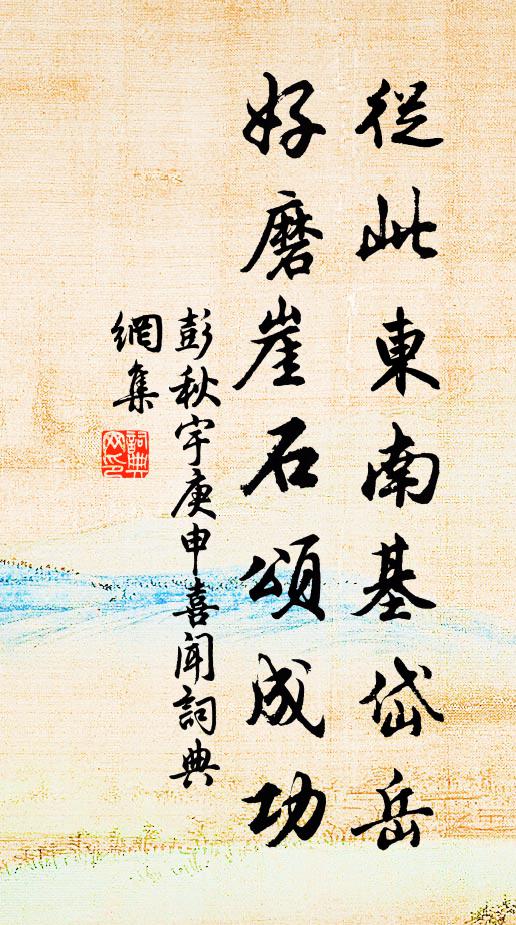 從此東南基岱岳
好磨崖石頌成功
彭秋宇庚申喜聞詞典
網集
詞典
网印